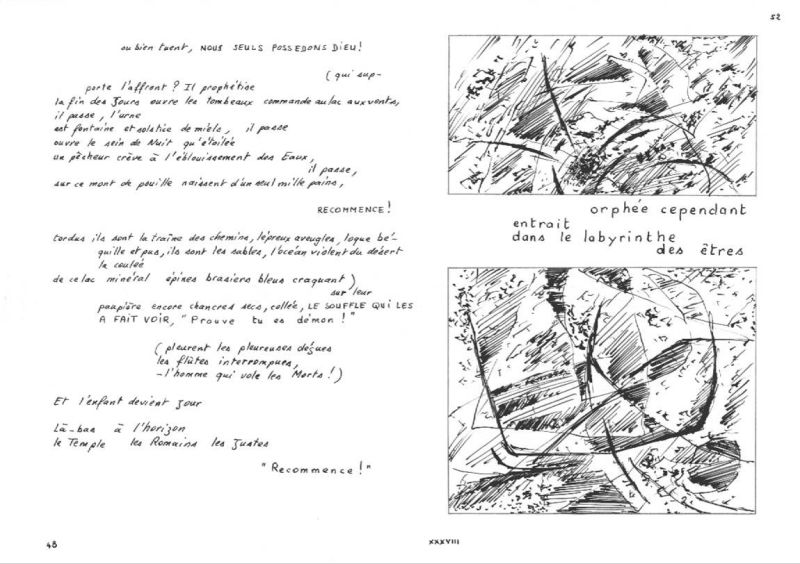 ou bien tuent, NOUS SEULS POSSEDONS DIEU!
(qui sup-
porte l'affront? Il prophétise
la fin des Jours ouvre les tombeaux commande au lac aux vents,
il passe, l'urne
est fontaine et solstice de miels, il passe
ouvre le sein de Nuit qu'étoilée
un pêcheur crève à l'éblouissement des Eaux,
il passe,
sur ce mont de pouille naissent d'un seul mille pains,
RECOMMENCE!
tordus ils sont la traîne des chemins, lépreux aveugles, loque bé-
quille et pus, ils sont les sables, l'océan violent du désert
la coulée
de ce lac minéral épines brasiers bleus craquant)
sur leur
paupière encore chancres secs, collée, LE SOUFFLE QUI LES
A FAIT VOIR, "Prouve tu es démon!"
(pleurent les pleureuses déçues
les flûtes interrompues,
-l'homme qui vole les Morts!)
Et l'enfant devient Jour
Là-bas à l'horizon
le Temple les Romains les Justes
"Recommence!"
48
52
orphée cependant
entrait
dans le labyrinthe
des êtres
XXXVIII